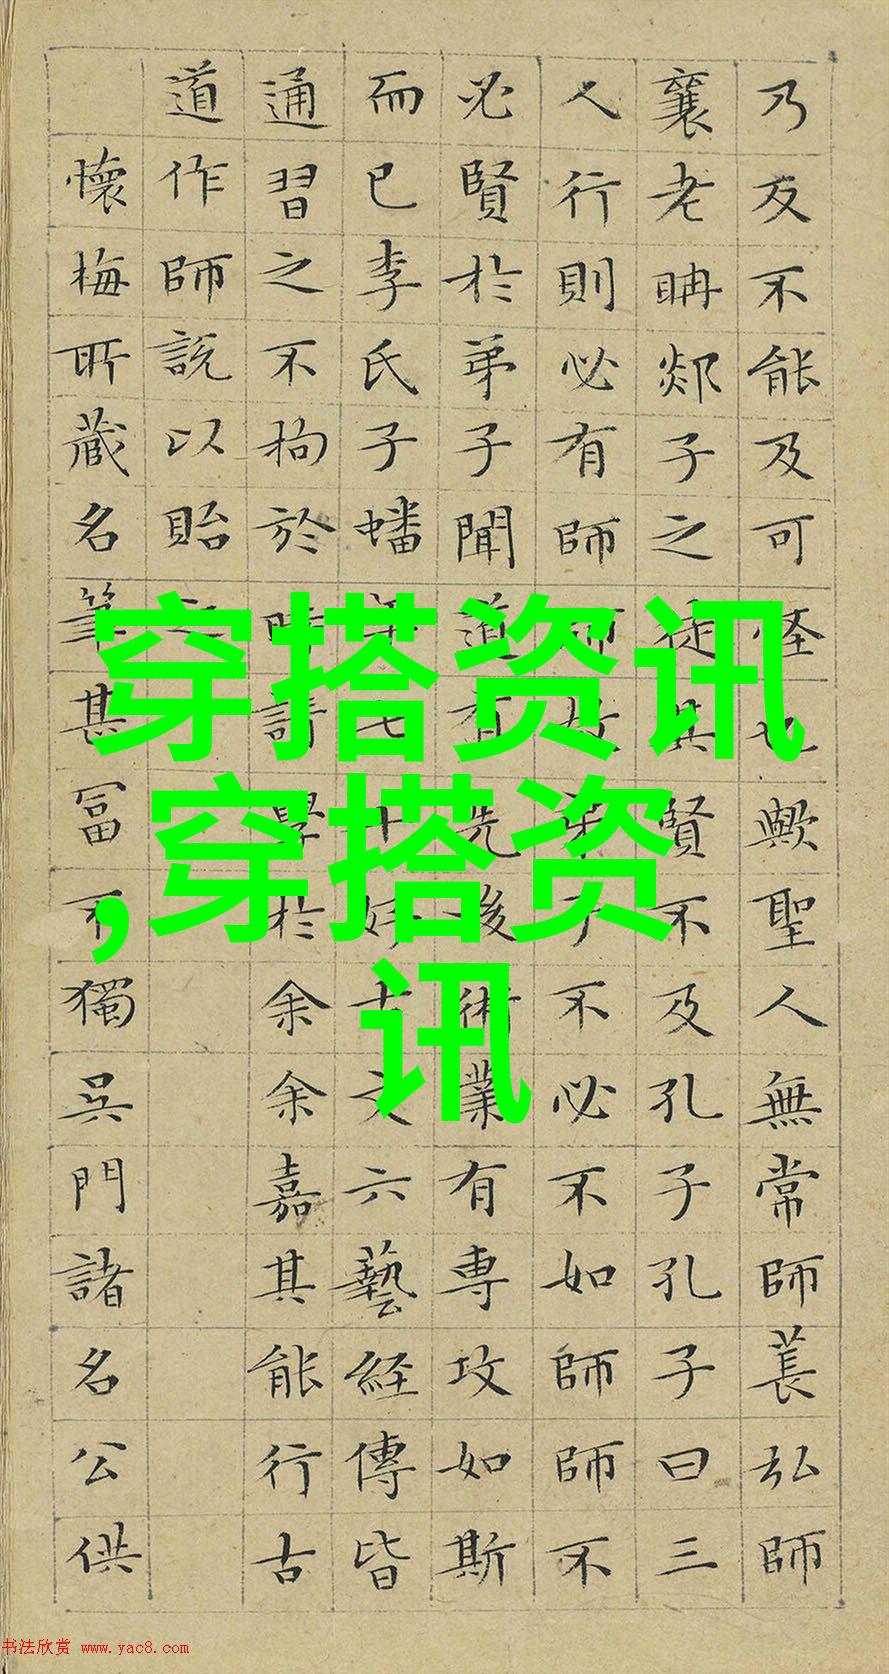 乃反不能及可怪也歟聖人無常師萇弘師
襄老聃郯子之徒其賢不及孔子孔子曰三
人行則必有師故弟子不必不如師師不
必賢於弟子聞道有先後術業有專攻如斯
而已李氏子蟠年七十好古文六藝經傳皆
通習之不拘於時請學於余余嘉其能行古
道作師說以貽之
懷梅所藏名筆甚富不獨吳門諸名公供
穿搭资讯
,穿搭资
讯
书法欣赏 www.yac8.com